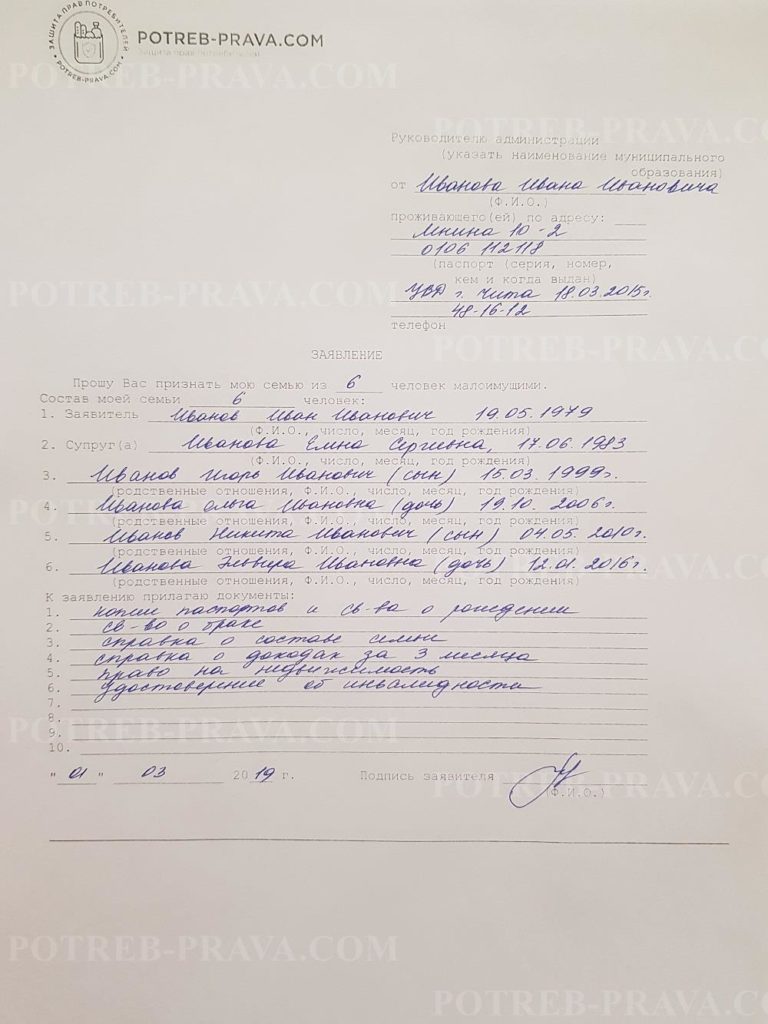 ЗАЩИТА ПРАВ ПОТРЕБИТЕЛЕЙ
POTREB-PRAVA.COM
POTREB-PRAVA.COM
Защита прав потребителей
POTREB-PRAVA.COM
POTREB-PRAVA.CO
Руководителю администрации
(указать наименование муниципального
образования)
от Иванова Ивана Ивановича
(Ф.И.О.)
проживающего(ей) по адресу:
Мнина 10-2
0106 112118
(паспорт (серия, номер,
кем и когда выдан)
УВД г. Чита 18.03.2015г.
48-16-12
POTREB-PRAVA.COM
телефон
POTREB-PRAVA.CO
ЗАЯВЛЕНИЕ
Прошу Вас признать мою семью из 6 человек малоимущими.
Состав моей семьи 6 человек:
1. Заявитель Иванов Иван Иванович 19.05.1979
(Ф.И.О., число, месяц, год рождения)
2. Супруг(а) Иванова Елена Сергеевна, 17.06.1983
(Ф.И.О., число, месяц, год рождения)
3. Иванов Игорь Иванович (сын) 15.03.1999г.
(родственные отношения, Ф.И.О., число, месяц, год рождения)
4. Иванова Ольга Ивановна (дочь) 19.10.2006г.
(родственные отношения, Ф.И.О., число, месяц, год рождения)
POTREB-PRAVA.COM
5. Иванов Никита Иванович (сын) 04.05.2010г.
(родственные отношения, Ф.И.О., число, месяц, год рождения)
POTREB-PRAVA.CO
6. Иванова Эльвира Ивановна (дочь) 12.01.2016г.
(родственные отношения, Ф.И.О., число, месяц, год рождения)
К заявлению прилагаю документы:
1. копии паспортов и св-ва о рождении
2. св-во о браке
3. справка о составе семьи
4. справка о доходах за 3 месяца
5. право на недвижимость
6. удостоверение об инвалидности
7.
8.
9.
10.
POTREB-PRAVA.COM
" 01 " 03 2019 г. Подпись заявителя
(Ф.И.О.)
POTREB-PRAVA.CO
POTREB-PRAVA.COM
POTREB-PRAVA.CO